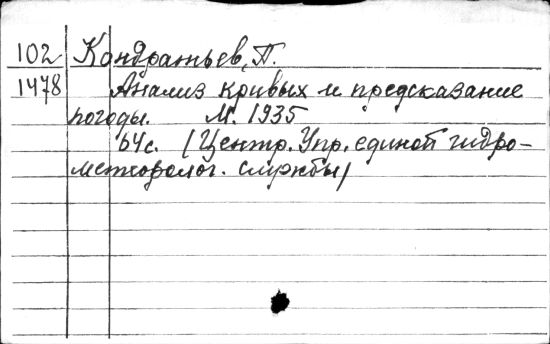 102 Кондратьев, П.
1478 Анализ кривых и предсказание
погоды. М. 1935
64с. (Центр. Упр. единой гидро-
метеоролог. службы)